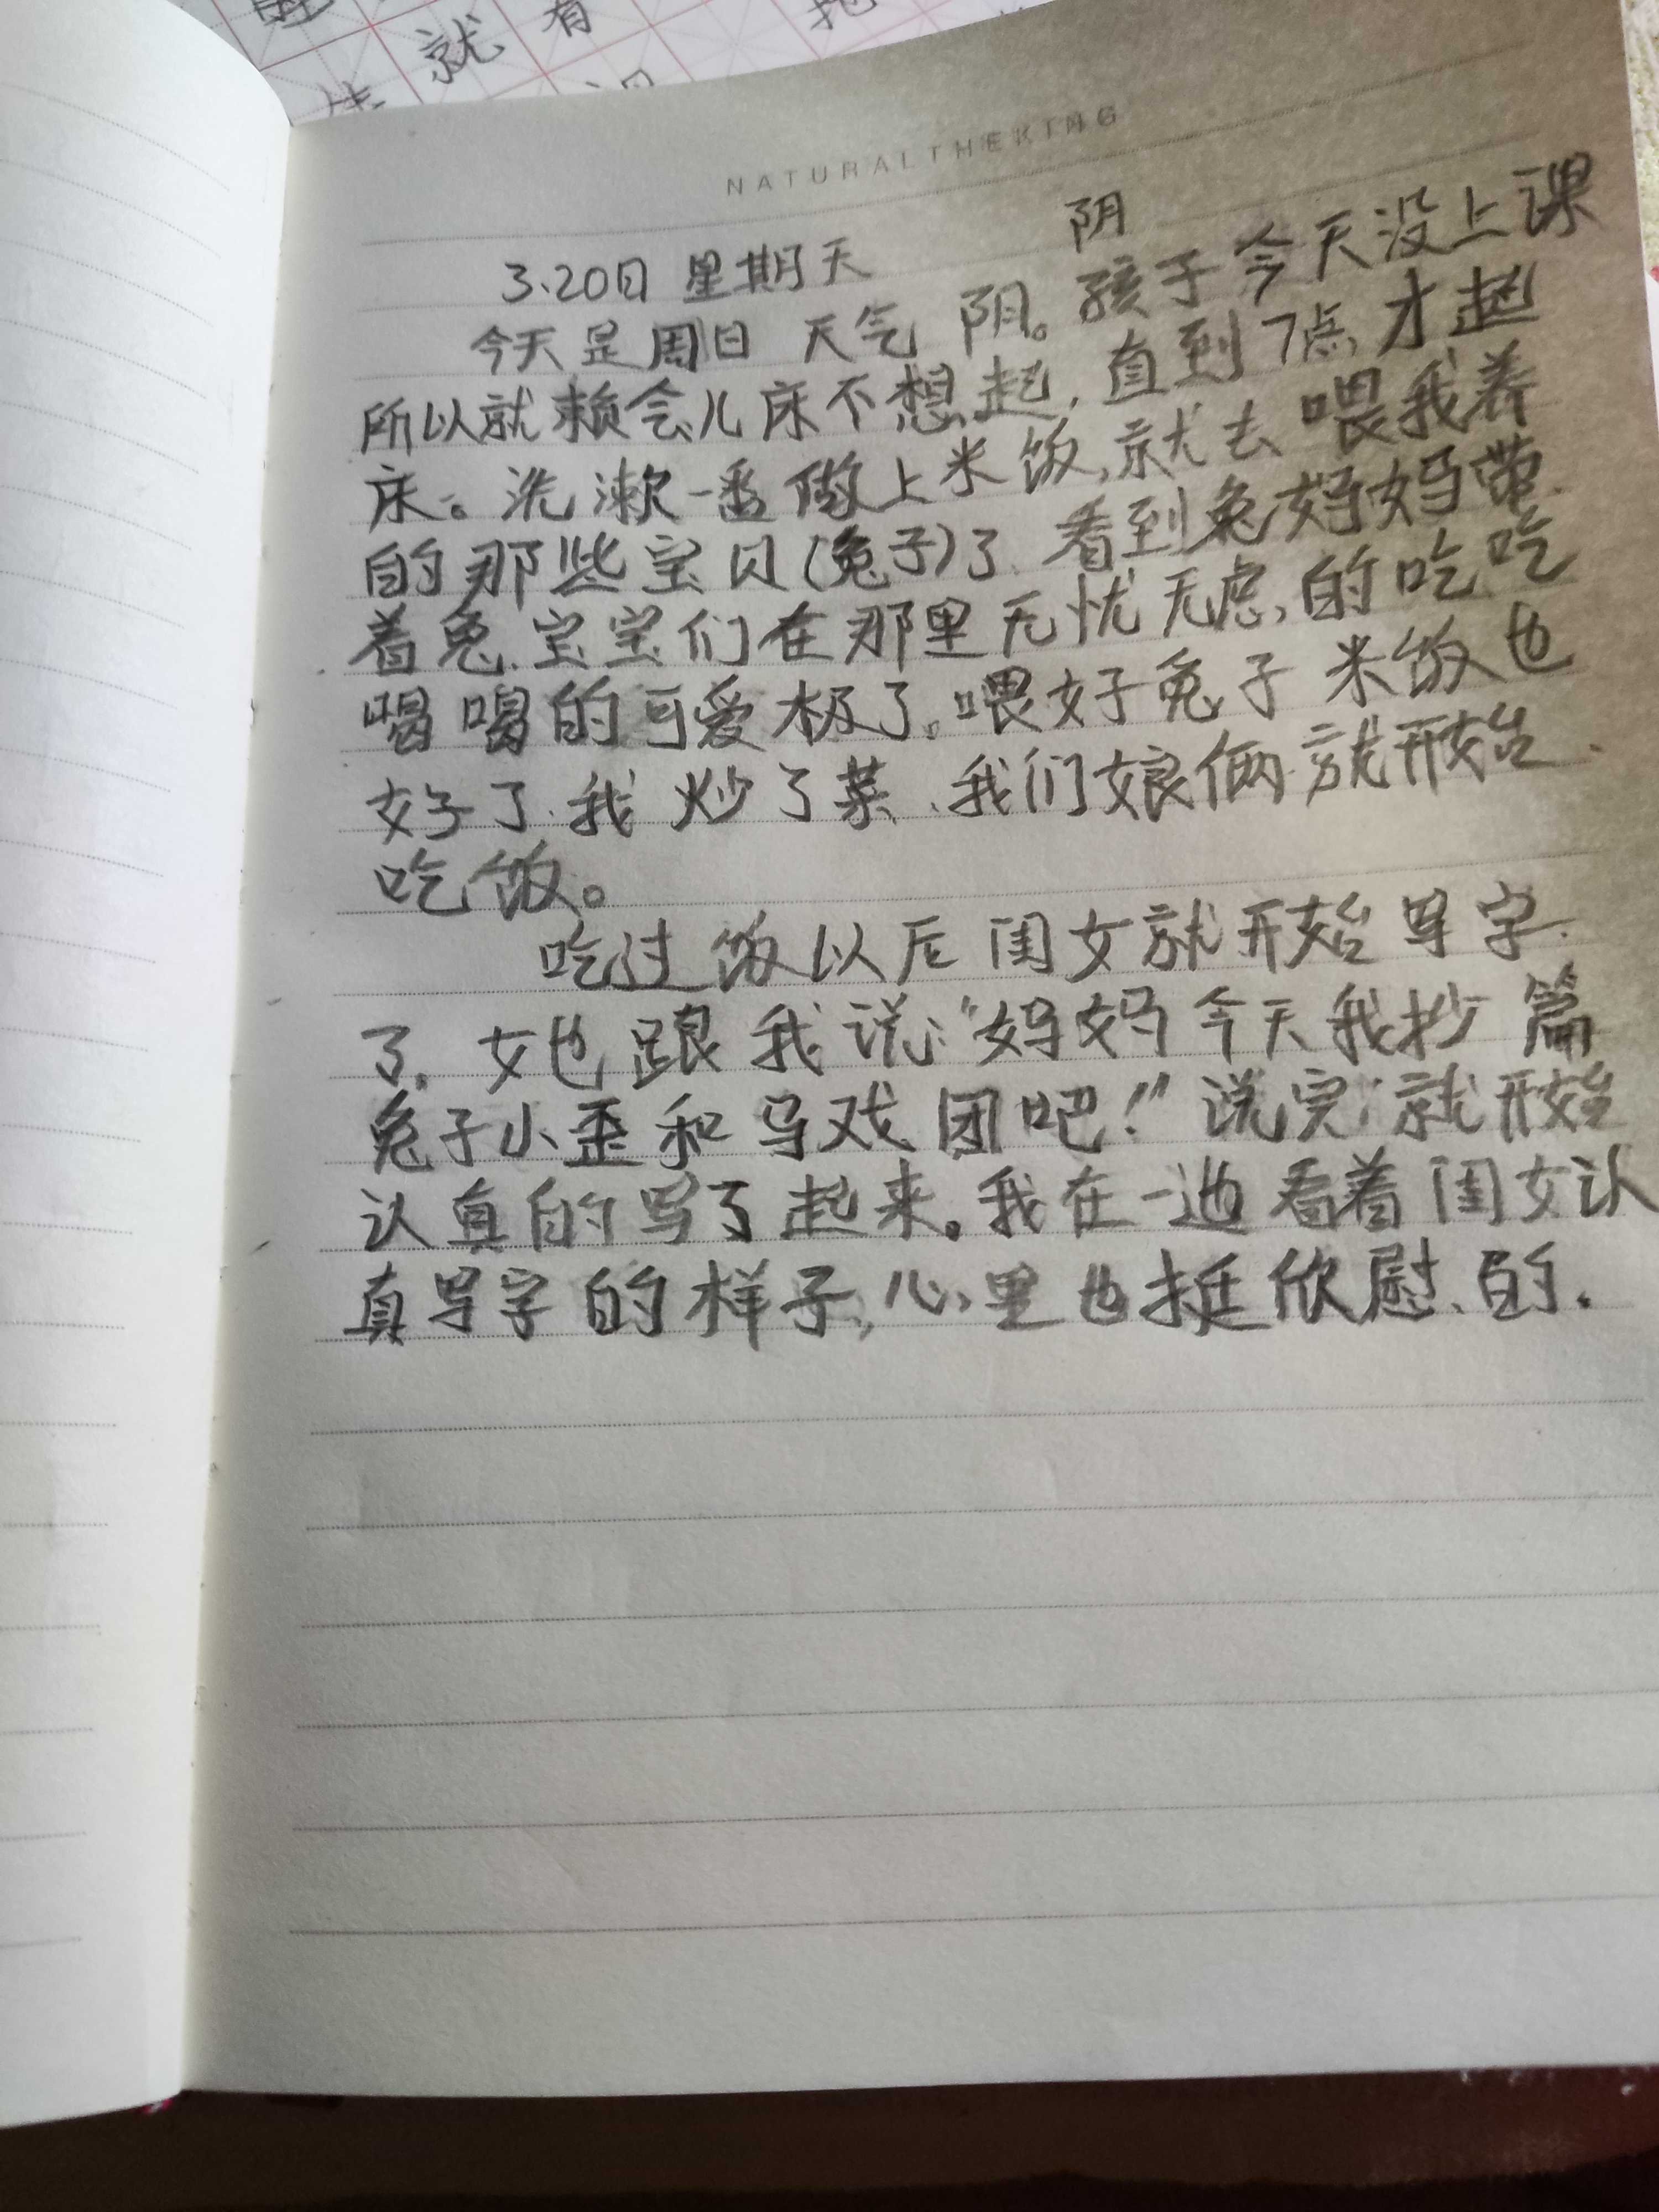 就有
NATURALTHEKING
3.20日 星期天 阴
今天是周日 天气 阴。孩子今天没上课
所以就赖会儿床不想起,直到7点才起
床。洗漱一番做上米饭,就去喂我养
的那些宝贝(兔子)了.看到兔妈妈带
着兔宝宝们在那里无忧无虑的吃吃
喝喝的可爱极了。喂好兔子米饭也
好了.我炒了菜.我们娘俩就开始
吃饭。
吃过饭以后闺女就开始写字
了.她跟我说:“妈妈今天我抄篇
兔子小歪和马戏团吧!”说完就开始
认真的写了起来。我在一边看着闺女认
真写字的样子,心里也挺欣慰的.